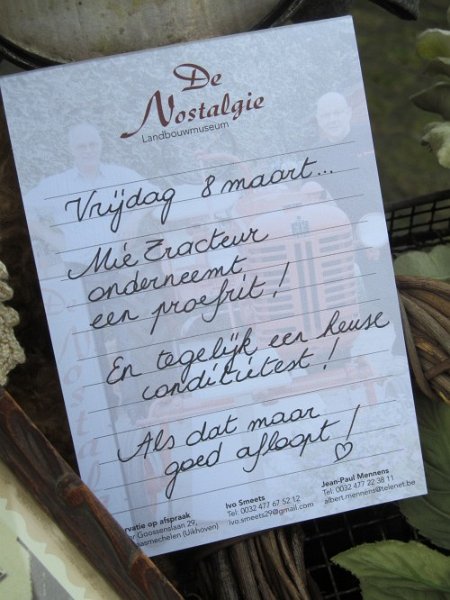 De
Nostalgie
Landbouwmuseum
Vrijdag 8 maart...
Mié Tracteur
onderneemt
een proefrit!
En tegelijk een heuse
conditietest!
Als dat maar
goed afloopt!
Ivo Smeets
Tel: 0032 477 67 52 12
ivo.smeets29@gmail.com
Jean-Paul Mennens
Tel: 0032 477 22 38 11
albert.mennens@telenet.be
op afspraak
Goossenslaan 29,
(Uikhoven)